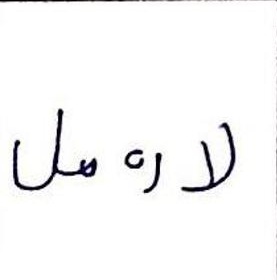 لا ره مل